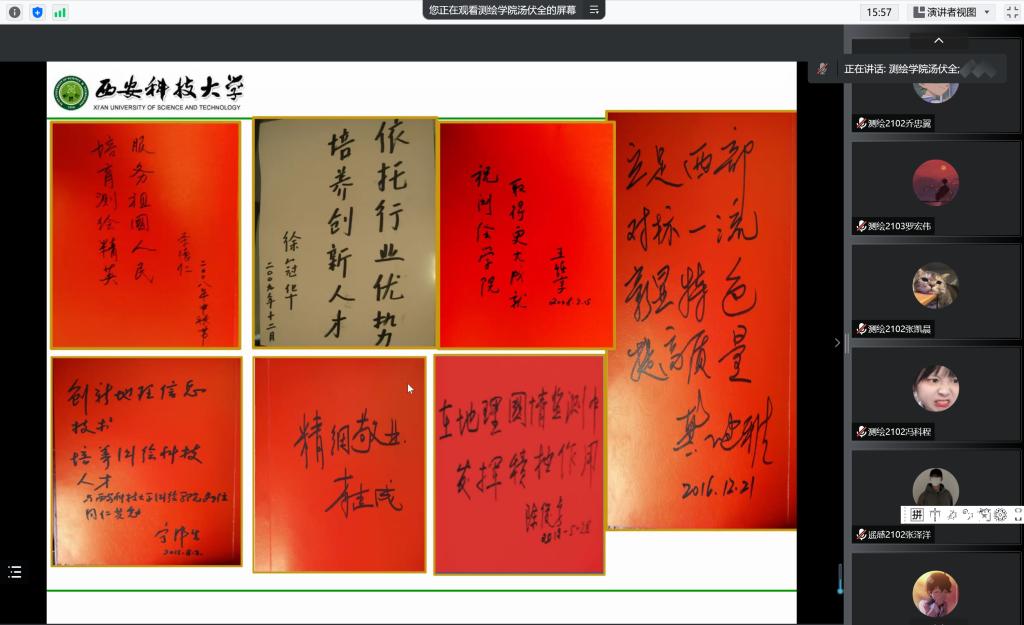 您正在观看测绘学院汤伏全的屏幕
15:57
演讲者视图
正在讲话: 测绘学院汤伏全;
西安科技大学
XI'AN UNIVERSITY OF SCIENCE AND TECHNOLOGY
服务祖國人民
培育测绘精英
李德仁
二〇〇八年中秋节
依托行业优势
培养创新人才
徐冠华
二〇〇九年十二月
祝测绘学院
取得更大成就
王任享
立足西部
对标一流
彰显特色
提高质量
龚健雅
2016.12.21
创新地理信息
技术
培养测绘科技
人才
与西安科技大学测绘学院各位
同仁共勉
宁津生
精细敬业
李建成
在地理國情监测中
发挥積极作用
陈俊勇
测绘2102乔忠翼
测绘2103罗宏伟
测绘2102张凯晨
测绘2102冯科程
遥感2102张泽洋
拼
中